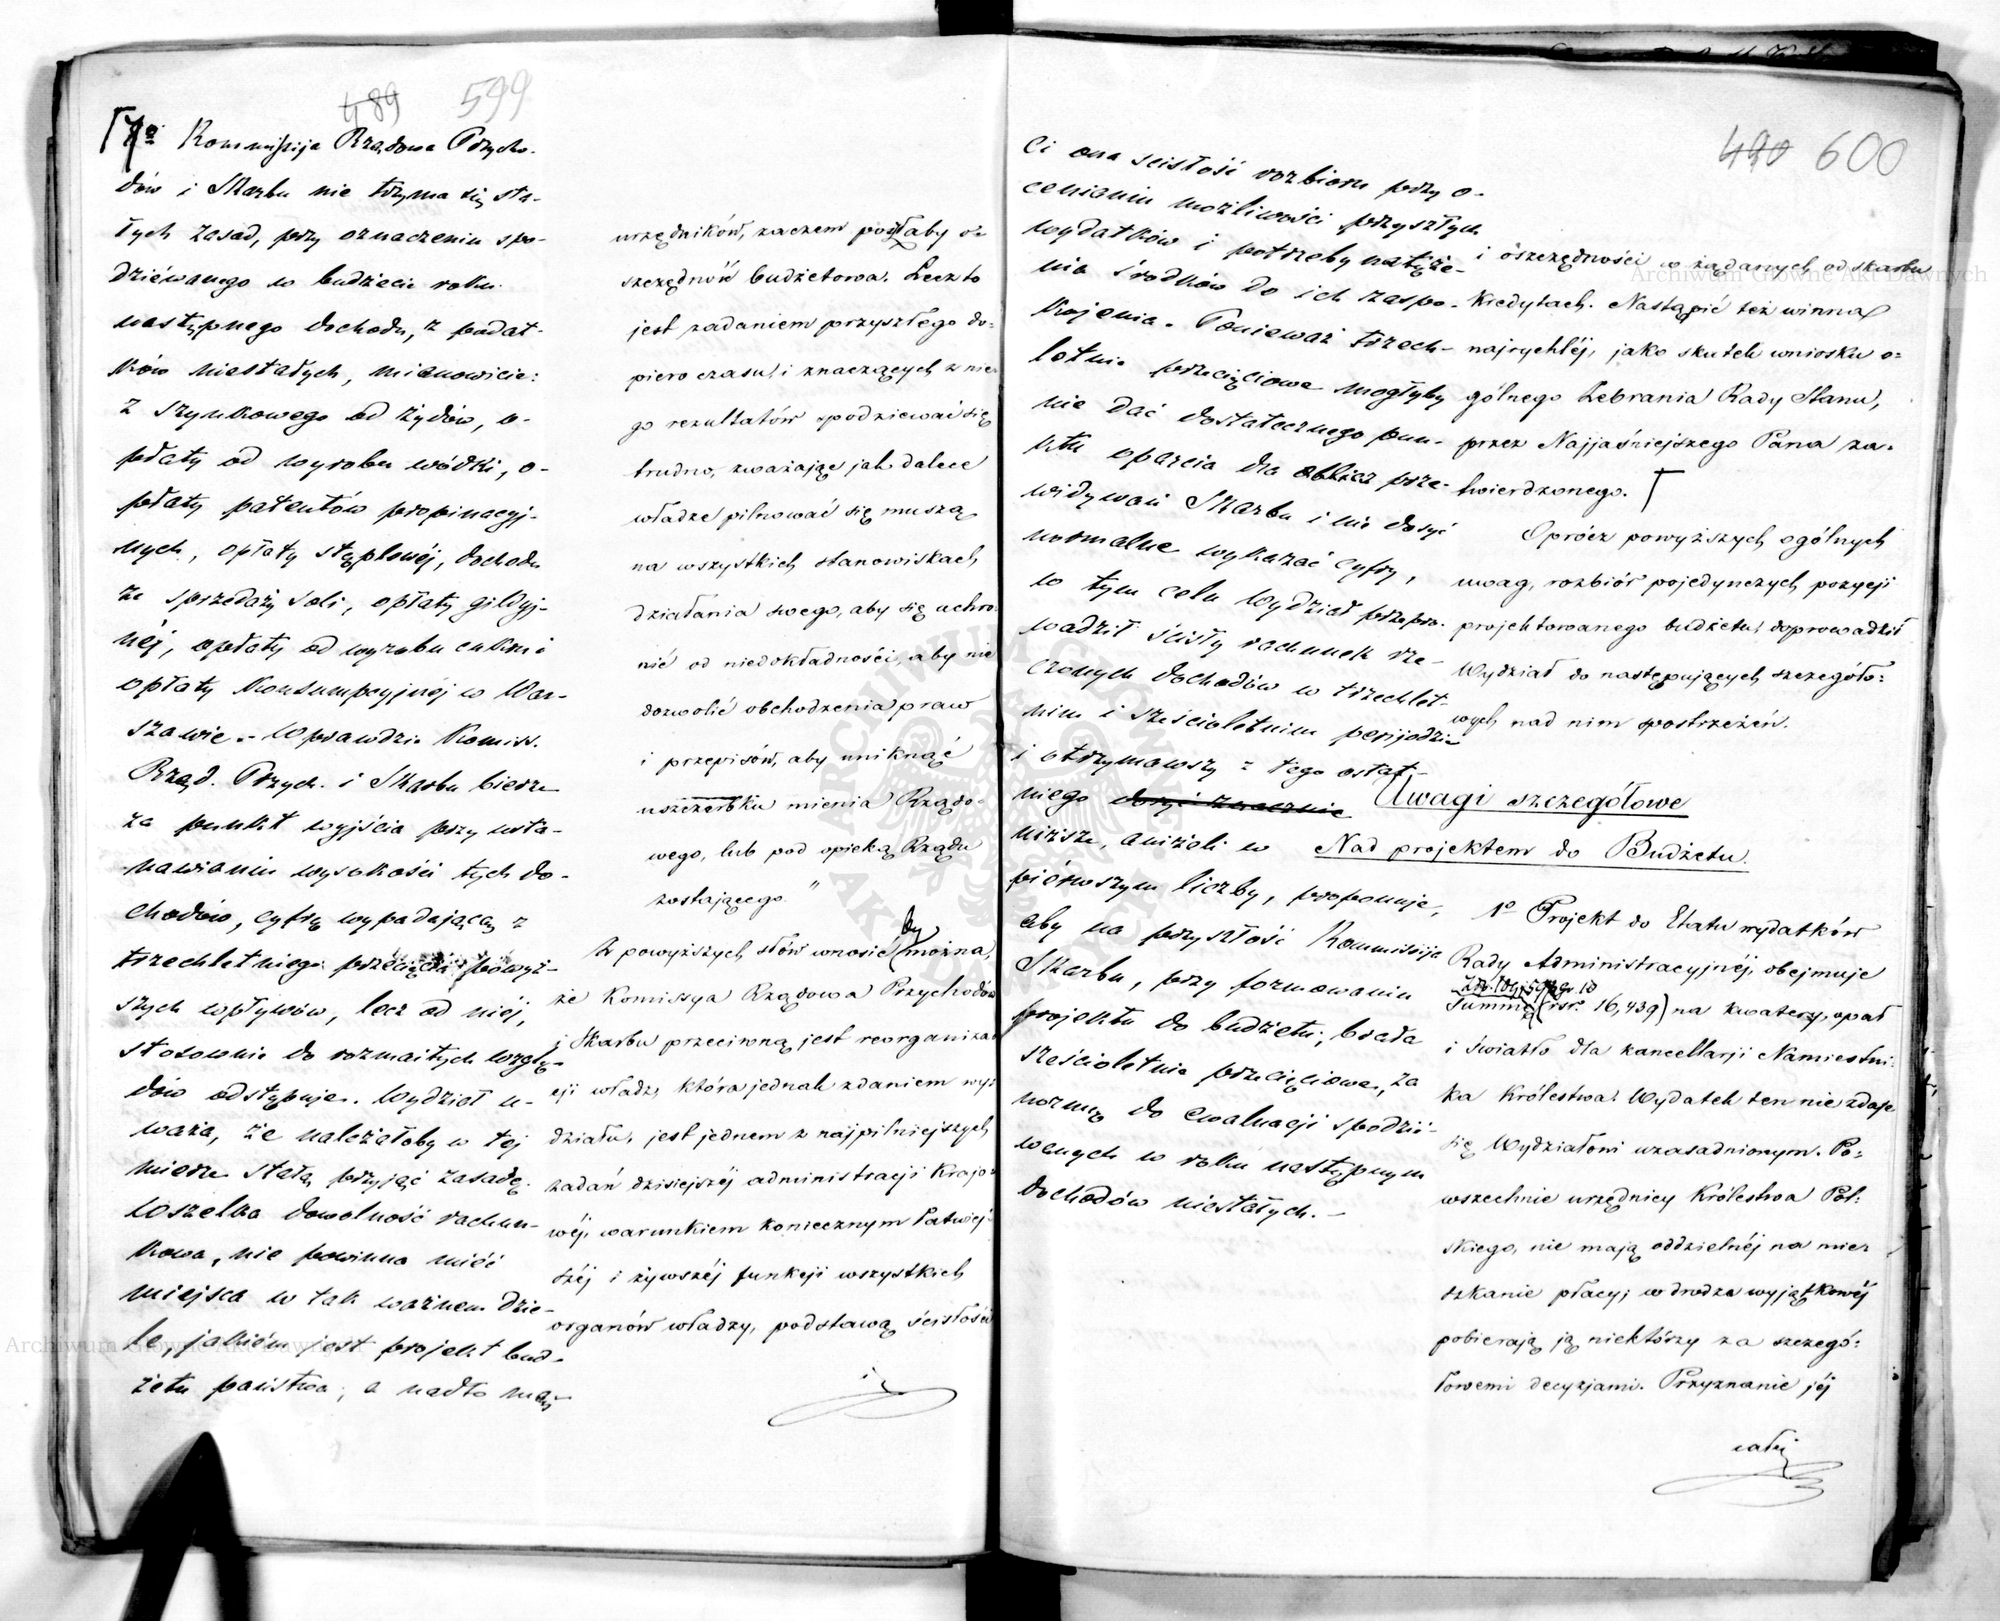 489 599
7º Kommissija Rządowa Przycho-
dów i Skarbu nie trzyma się sta-
łych zasad, przy oznaczeniu spo-
dziéwanego w budżecie roku
następnego dochodu, z podat-
ków niestałych, mianowicie:
z szynkowego od żydów, o-
płaty od wyrobu wódki, o-
płaty patentów propinacyj-
nych, opłaty stęplowéj, dochodu
ze sprzedaży soli, opłaty gildyj-
néj, opłaty od wyrobu cukru i
opłaty konsumpcyjnéj w War-
szawie. – Wprawdzie Komiss.
Rząd. Przych. i Skarbu bierze
za punkt wyjścia przy usta-
nawianiu wysokości tych do-
chodów, cyfrę wypadającą z
trzechletniego przecięcia powyż-
szych wpływów, lecz od niéj,
stosownie do rozmaitych wzglę-
dów odstępuje. Wydział u-
waża, że należałoby w téj
mierze stałą przyjąć zasadę.
Wszelka dowolność rachun-
kowa, nie powinna mieć
miejsca w tak ważnem dzie-
le, jakiém jest projekt bud-
żetu państwa; a nadto mą-
urzędników, zaczem poszłaby o-
szczędność budżetowa. Lecz to
jest zadaniem przyszłego do-
piero czasu, i znaczących z nie-
go rezultatów spodziewać się
trudno, zważając jak dalece
władze pilnować się muszą
na wszystkich stanowiskach
działania swego, aby się uchro-
nić od niedokładności, aby nie
dozwolić obchodzenia praw
i przepisów, aby uniknąć
uszczerbku mienia Rządo-
wego, lub pod opieką Rządu
zostającego"
Z powyższych słów wnosić by można,
że Komissya Rządowa Przychodów
i Skarbu przeciwną jest reorganiza-
cji władz, która jednak zdaniem wy-
działu, jest jednem z najpilniejszych
zadań dzisiejszéj administracji krajo-
wéj, warunkiem koniecznym łatwiej-
széj i żywszéj funkcji wszystkich
organów władzy, podstawą ścisłości
i
490 600
ci ona scisłość rozbioru przy o-
cenianiu możliwości przyszłych
wydatków i potrzeby natęże-
nia środków do ich zaspo-
kojenia. Ponieważ trzech-
letnie przecięciowe mogłyby
nie dać dostatecznego pun-
ktu oparcia dla obliczeń prze-
widywań Skarbu i nie dosyć
normalne wykazać cyfry,
w tym celu Wydział przepro-
wadził ścisły rachunek rze-
czonych dochodów w trzechlet-
nim i sześcioletnim perijodzie
i otrzymawszy z tego ostat-
niego dosyć znacznie
niższe, aniżeli w
piérwszym liczby, proponuje,
aby na przyszłość Kommissija
Skarbu, przy formowaniu
projektu do budżetu, brała
sześcioletnie przecięciowe, za
normę do ewaluacji spodzié-
wanych w roku następnym
dochodów niestałych. –
i oszczędności w żądanych od skarbu
kredytach. Nastąpić też winna
najrychléj, jako skutek wniosku o-
gólnego Zebrania Rady Stanu,
przez Najjaśniejszego Pana za-
twierdzonego.
Oprócz powyższych ogólnych
uwag, rozbiór pojedynczych pozycji
projektowanego budżetu, doprowadził
Wydział do następujących szczegóło-
wych nad nim spostrzeżeń.
Uwagi szczegółowe
Nad projektem do Budżetu.
1º Projekt do Etatu wydatków
Rady Administracyjnéj, obejmuje
Summę (rsr. 16,439) na kwatery, opał
i światło dla kancellarji Namiestni-
ka Królestwa. Wydatek ten nie zdaje
się Wydziałowi uzasadnionym. Po-
wszechnie urzędnicy Królestwa Pol-
skiego, nie mają oddzielnéj na miesz-
szkanie płacy; w drodze wyjątkowéj
pobierają ją niektórzy za szczegó-
łowemi decyzjami. Przyznanie jéj
całéj